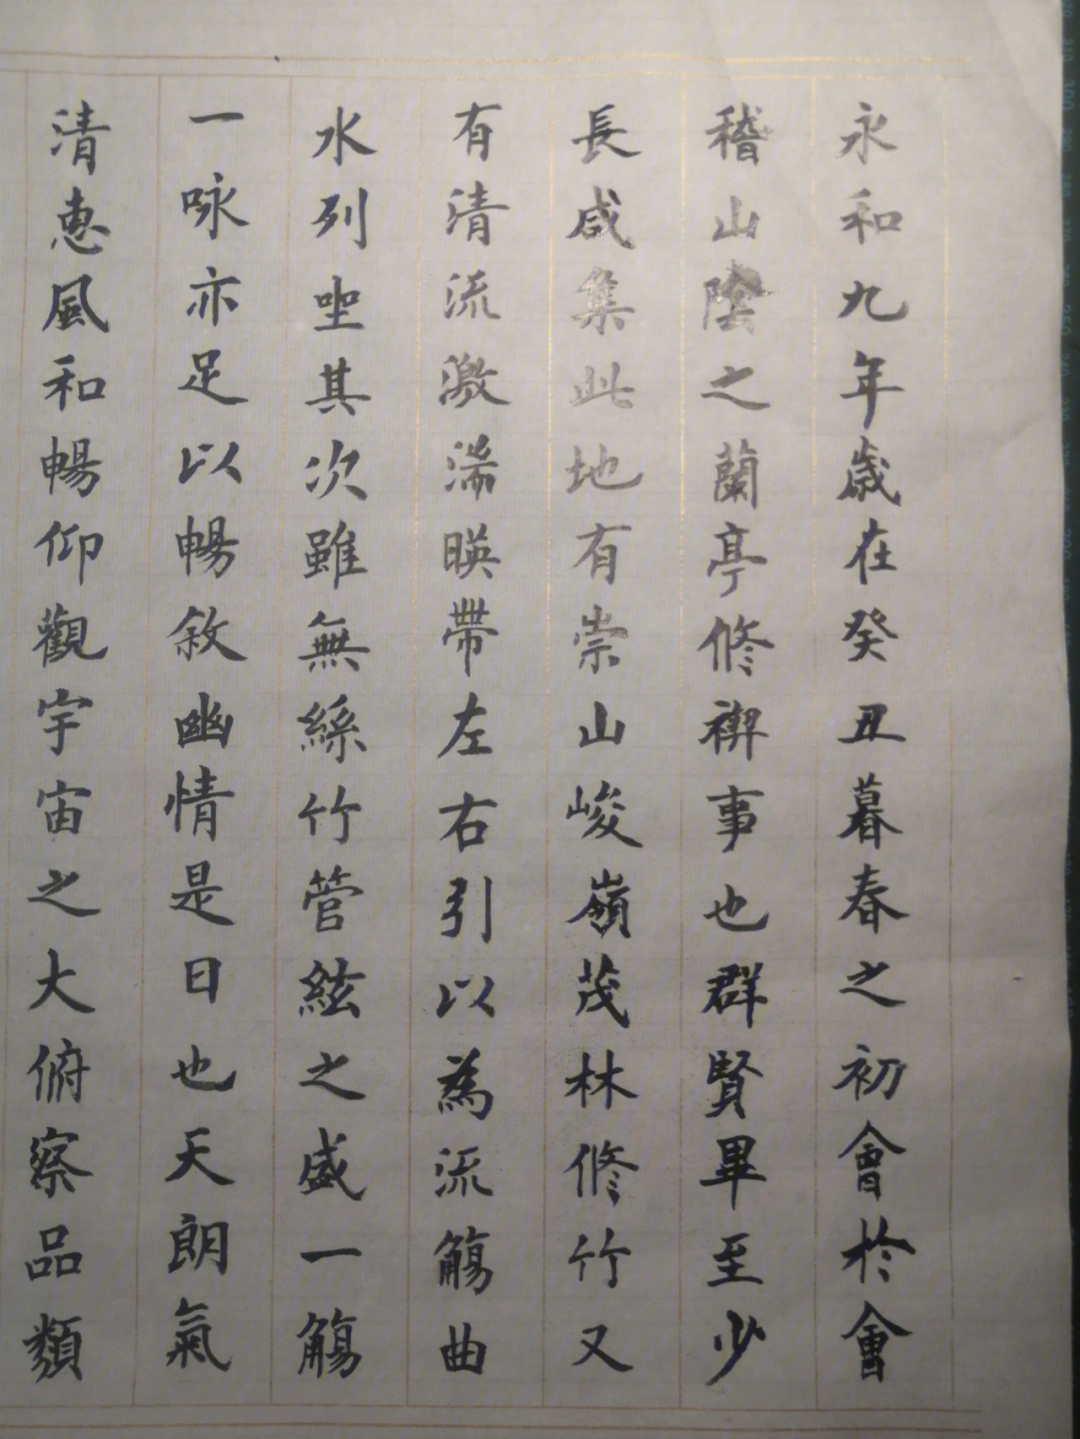 永和九年歲在癸丑暮春之初會於會
稽山陰之蘭亭脩禊事也群賢畢至少
長咸集此地有崇山峻嶺茂林脩竹又
有清流激湍暎帶左右引以為流觴曲
水列坐其次雖無絲竹管絃之盛一觴
一咏亦足以暢敘幽情是日也天朗氣
清惠風和暢仰觀宇宙之大俯察品類